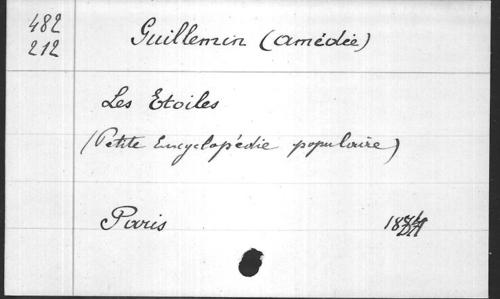 482
212
Guillemin (Amédée)
Les Etoiles
(Petite Encyclopédie populaire)
Paris